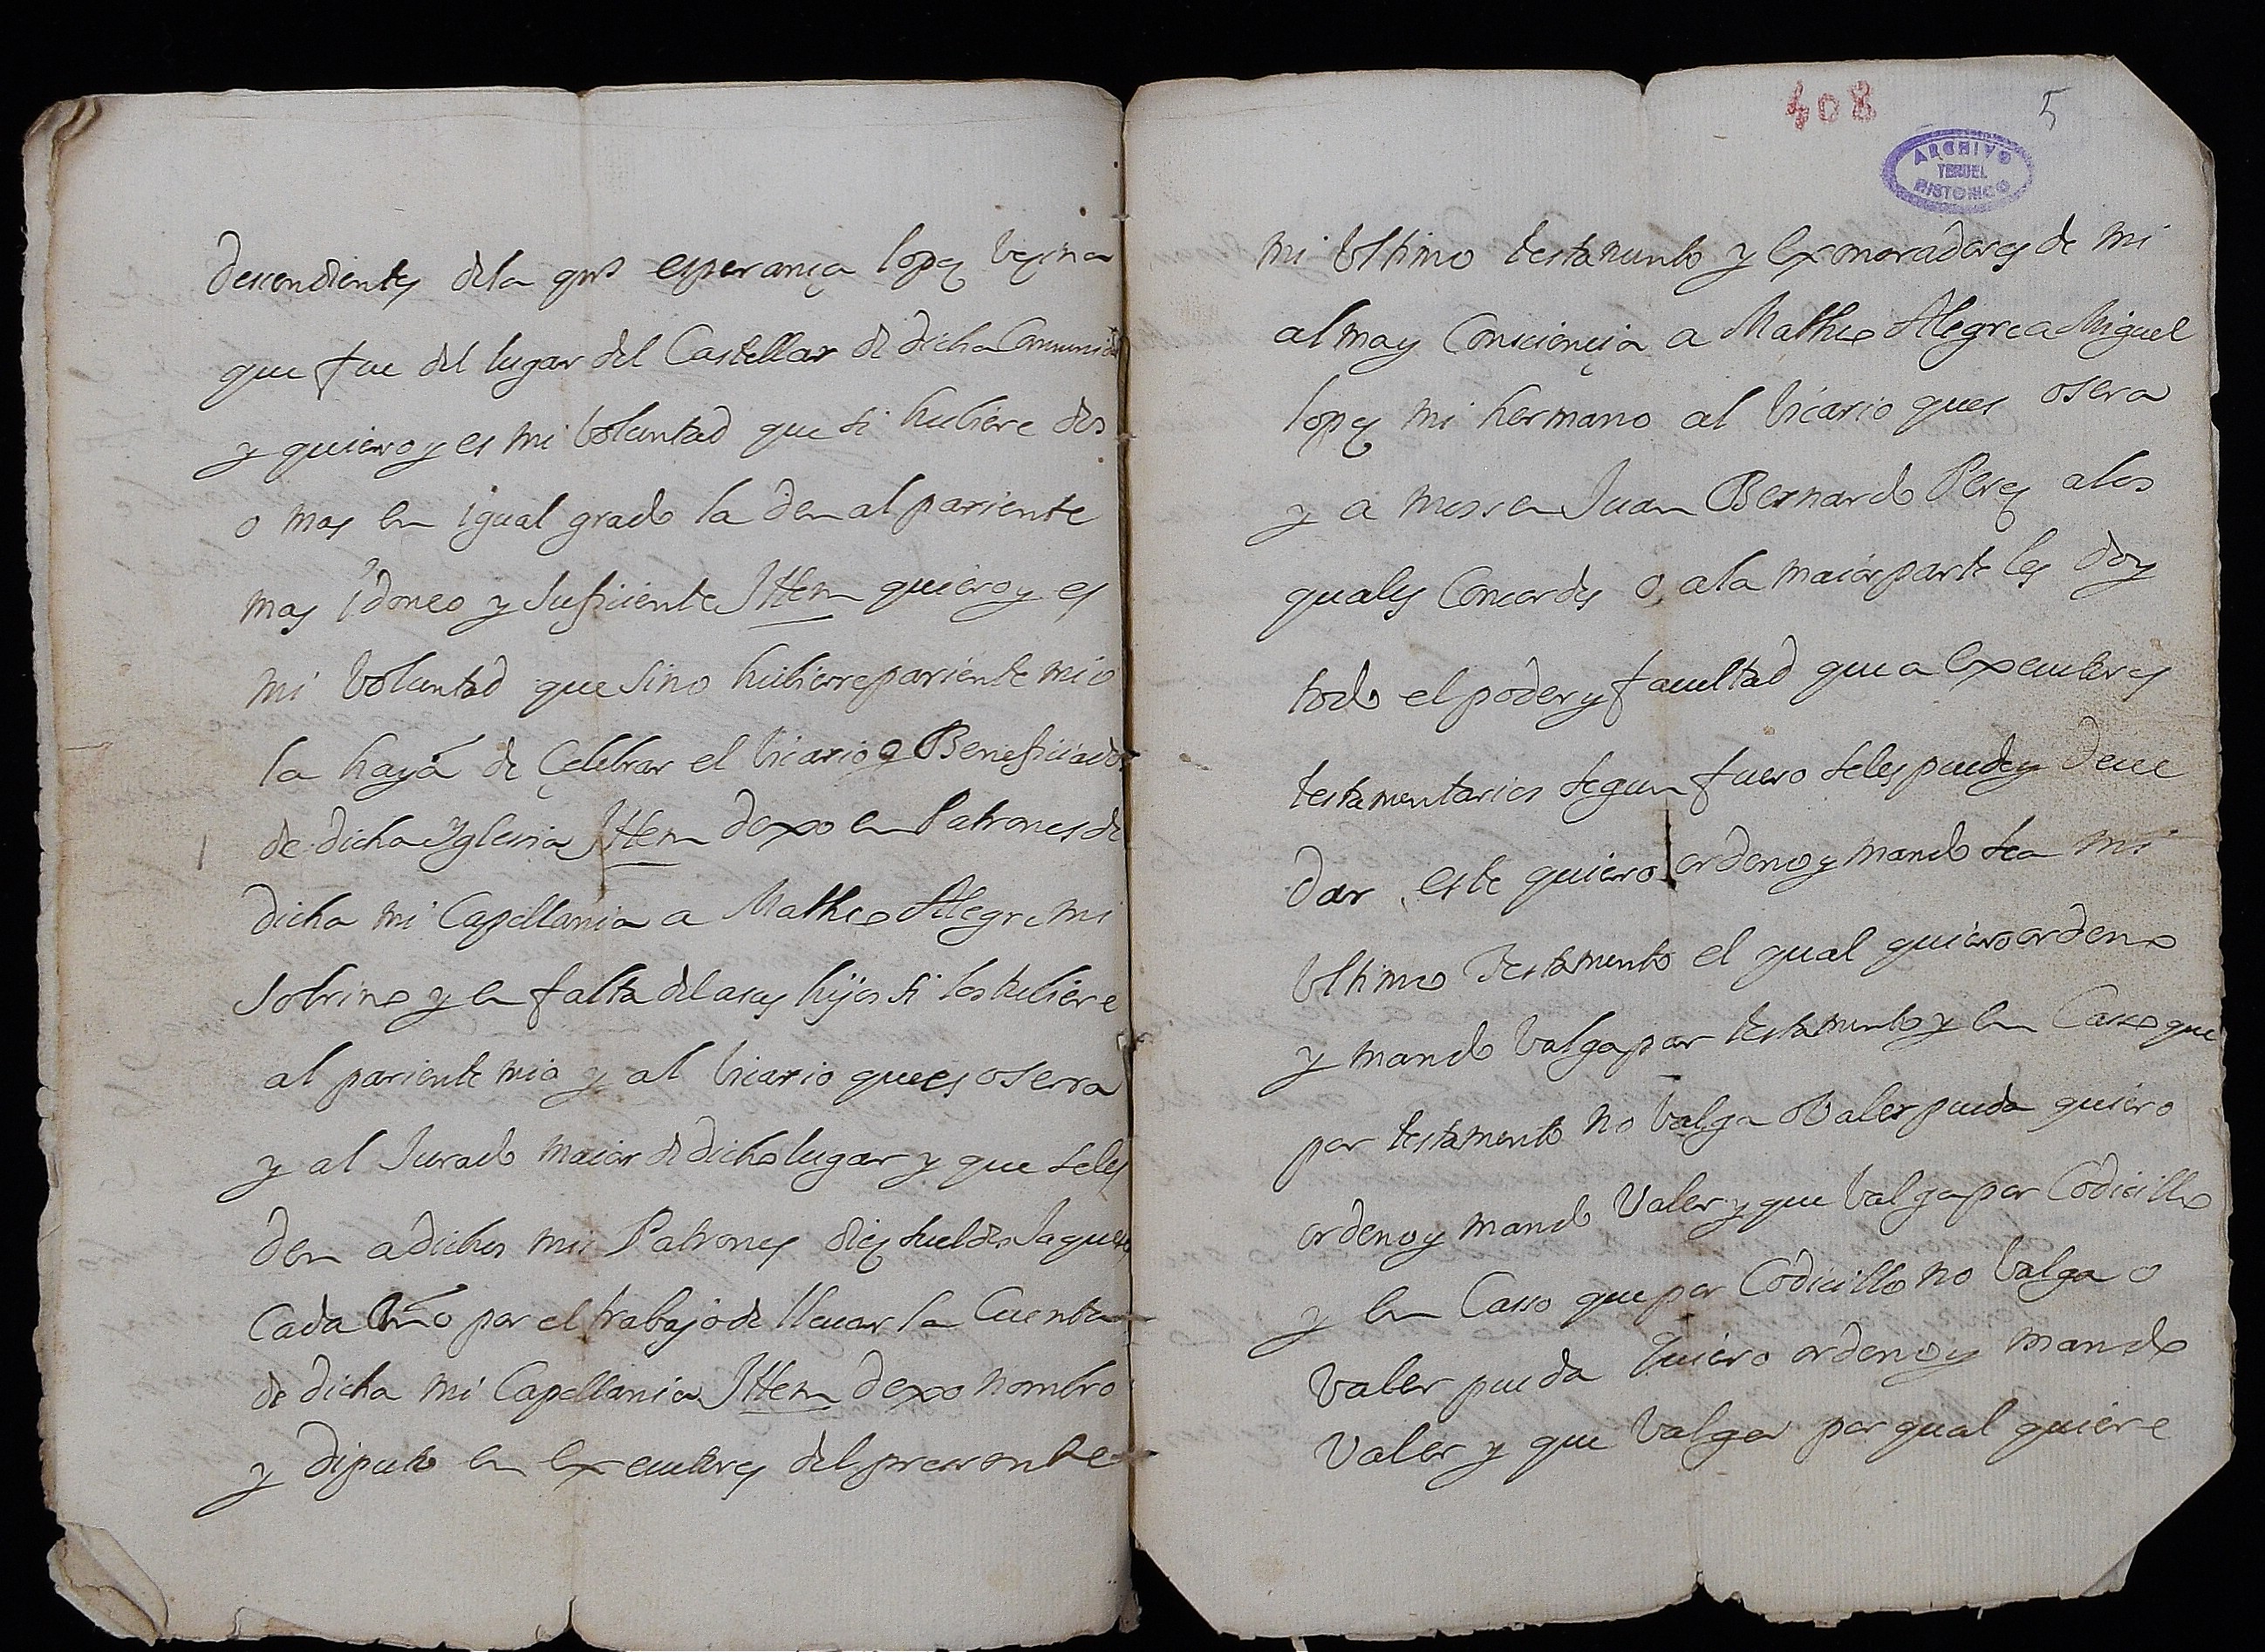 descendientes dela qm̃s esperança lopez vezina
que fue del lugar del Castellar de dicha Comunidad
y quiero y es mi voluntad que si hubiere dos
o mas en igual grado la den al pariente
mas idoneo y sufficiente Ittem quiero y es
mi voluntad que sino hubiere pariente mio
la haya de Çelebrar el vicario o Benefficiados
de dicha Yglesia Ittem dexo en Patrones de
dicha mi Capellania a Matheo Alegre mi
sobrino y en falta del a sus hijos si los tubiere
al pariente mio y al vicario que es o serra
y al Jurado maior de dicho lugar y que seles
den a dichos mis Patrones diez sueldos Jaqueses
Cada Año por el trabajo de lleuar la Cuenta
de dicha mi Capellania Ittem dexo nombro
y diputo en executores del pressente
408
5
ARCHIVO
TERUEL
HISTORICO
mi vltimo testamento y exoneradores de mi
alma y Consciençia a Matheo Alegre a Miguel
lopez mi hermano al vicario ques o sera
y a mossen Juan Bernardo Perez a los
quales Concordes o, ala maior parte les doy
todo el poder y facultad que a executores
testamentarios segun fuero seles puede y deue
dar, este quiero ordeno y mando sea mi
vltimo Testamento el qual quiero ordeno
y mando valga por testamento y en Casso que
por testamento no valga o valer pueda quiero
ordeno y mando valer y que valga por Codicillo
y en Casso que por Codicillo no valga o
valer pueda quiero ordeno y mando
valer y que valga por qual quiere